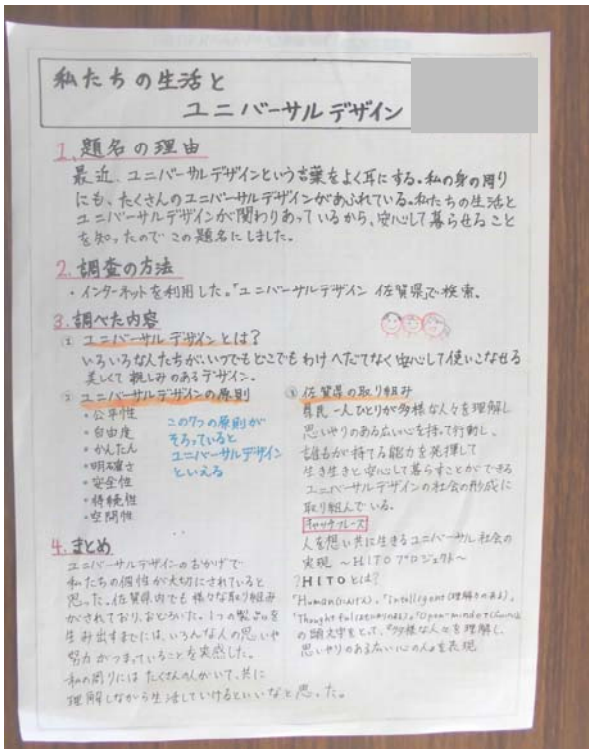 私たちの生活と
ユニバーサルデザイン
1.題名の理由
最近、ユニバーサルデザインという言葉をよく耳にする。私の身の周り
にも、たくさんのユニバーサルデザインがあふれている。私たちの生活と
ユニバーサルデザインが関わりあっているから、安心して暮らせること
を知ったのでこの題名にしました。
2.調査の方法
・インターネットを利用した。「ユニバーサルデザイン 佐賀県」で検索。
3.調べた内容
① ユニバーサルデザインとは?
いろいろな人たちが、いつでもどこでもわけへだてなく安心して使いこなせる
美しくて親しみのあるデザイン。
② ユニバーサルデザインの原則
・公平性
・自由度
・かんたん
・明確さ
・安全性
・持続性
・空間性
この7つの原則が
そろっていると
ユニバーサルデザイン
といえる
③ 佐賀県の取り組み
県民一人ひとりが多様な人々を理解し
思いやりのある広い心を持って行動し、
誰もが持てる能力を発揮して
生き生きと安心して暮らすことができる
ユニバーサルデザインの社会の形成に
取り組んでいる。
キャッチフレーズ
人を想い共に生きるユニバーサル社会の
実現 ~HITOプロジェクト~
?HITOとは?
「Human(にんげん)」、「Intelligent(理解力のある)」、
「Thoughtful」、「Open-minded」
の頭文字をとって、「多様な人々を理解し、
思いやりのある広い心の人」を表現
4.まとめ
ユニバーサルデザインのおかげで
私たちの個性が大切にされていると
思った。佐賀県内でも様々な取り組み
がされており、おどろいた。1つの製品を
生み出すまでには、いろんな人の思いや
努力がつまっていることを実感した。
私の周りにはたくさんの人がいて、共に
理解しながら生活していけるといいなと思った。